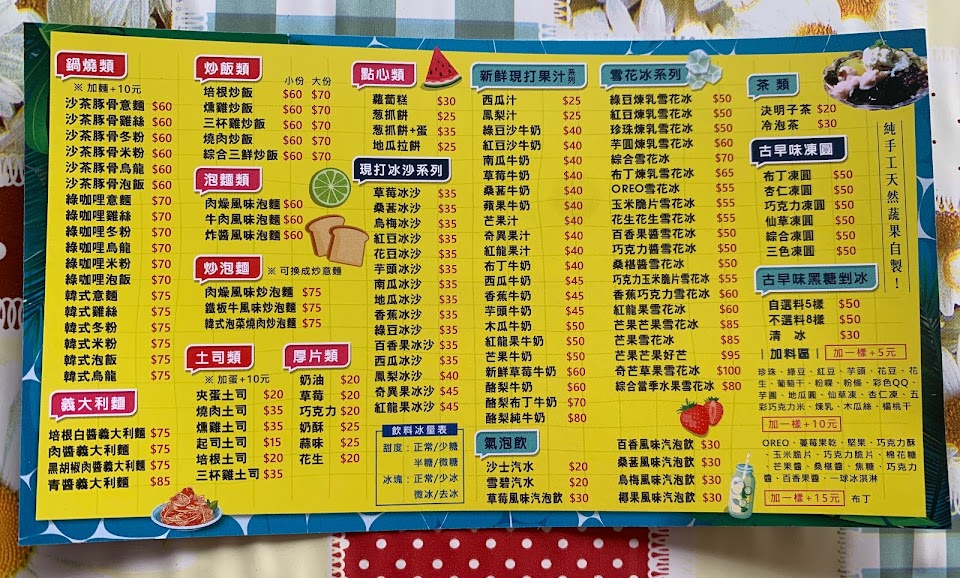 鍋燒類
※ 加麵+10元
沙茶豚骨意麵 $60
沙茶豚骨雞絲 $60
沙茶豚骨冬粉 $60
沙茶豚骨米粉 $60
沙茶豚骨烏龍 $60
沙茶豚骨泡飯 $60
綠咖哩意麵 $70
綠咖哩雞絲 $70
綠咖哩冬粉 $70
綠咖哩烏龍 $70
綠咖哩米粉 $70
綠咖哩泡飯 $70
韓式意麵 $75
韓式雞絲 $75
韓式冬粉 $75
韓式米粉 $75
韓式泡飯 $75
韓式烏龍 $75
義大利麵
培根白醬義大利麵 $75
肉醬義大利麵 $75
黑胡椒肉醬義大利麵 $75
青醬義大利麵 $85
炒飯類
小份 大份
培根炒飯 $60 $70
燻雞炒飯 $60 $70
三杯雞炒飯 $60 $70
燒肉炒飯 $60 $70
綜合三鮮炒飯 $60 $70
泡麵類
肉燥風味泡麵 $60
牛肉風味泡麵 $60
炸醬風味泡麵 $60
炒泡麵 ※ 可換成炒意麵
肉燥風味炒泡麵 $75
鐵板牛風味炒泡麵 $75
韓式泡菜燒肉炒泡麵 $75
土司類
※ 加蛋+10元
夾蛋土司 $20
燒肉土司 $35
燻雞土司 $35
起司土司 $15
培根土司 $20
三杯雞土司 $35
厚片類
奶油 $20
草莓 $20
巧克力 $20
奶酥 $25
蒜味 $25
花生 $20
點心類
蘿蔔糕 $30
葱抓餅 $25
葱抓餅+蛋 $35
地瓜拉餅 $25
現打冰沙系列
草莓冰沙 $35
桑葚冰沙 $35
烏梅冰沙 $35
紅豆冰沙 $35
花豆冰沙 $35
芋頭冰沙 $35
南瓜冰沙 $35
地瓜冰沙 $35
香蕉冰沙 $35
綠豆冰沙 $35
百香果冰沙 $35
西瓜冰沙 $35
鳳梨冰沙 $40
奇異果冰沙 $45
紅龍果冰沙 $45
飲料冰量表
甜度：正常/少糖
半糖/微糖
冰塊：正常/少冰
微冰/去冰
新鮮現打果汁系列
西瓜汁 $25
鳳梨汁 $25
綠豆沙牛奶 $40
紅豆沙牛奶 $40
南瓜牛奶 $40
草莓牛奶 $40
桑葚牛奶 $40
蘋果牛奶 $40
芒果汁 $40
奇異果汁 $40
紅龍果汁 $40
布丁牛奶 $40
西瓜牛奶 $45
香蕉牛奶 $45
芋頭牛奶 $45
木瓜牛奶 $50
紅龍果牛奶 $50
芒果牛奶 $50
新鮮草莓牛奶 $60
酪梨牛奶 $60
酪梨布丁牛奶 $70
酪梨純牛奶 $80
氣泡飲
沙士汽水 $20
雪碧汽水 $20
草莓風味汽泡飲 $30
百香風味汽泡飲 $30
桑葚風味汽泡飲 $30
烏梅風味汽泡飲 $30
椰果風味汽泡飲 $30
雪花冰系列
綠豆煉乳雪花冰 $50
紅豆煉乳雪花冰 $50
珍珠煉乳雪花冰 $50
芋圓煉乳雪花冰 $60
綜合雪花冰 $70
布丁煉乳雪花冰 $65
OREO雪花冰 $55
玉米脆片雪花冰 $55
花生花生雪花冰 $55
百香果醬雪花冰 $60
巧克力醬雪花冰 $50
桑椹醬雪花冰 $50
巧克力玉米脆片雪花冰 $55
香蕉巧克力雪花冰 $60
紅龍果雪花冰 $60
芒果芒果雪花冰 $85
芒果雪花冰 $85
芒果芒果好芒 $95
奇芒草果雪花冰 $100
綜合當季水果雪花冰 $80
茶 類
決明子茶 $20
冷泡茶 $30
古早味凍圓
布丁凍圓 $50
杏仁凍圓 $50
巧克力凍圓 $50
仙草凍圓 $50
綜合凍圓 $50
三色凍圓 $50
古早味黑糖剉冰
自選料5樣 $50
不選料8樣 $50
清 冰 $30
|加料區| 加一樣+5元
珍珠、綠豆、紅豆、芋頭、花豆、花
生、葡萄干、粉粿、粉條、彩色QQ、
芋圓、地瓜圓、仙草凍、杏仁凍、五
彩巧克力米、煉乳、木瓜絲、楊桃干
加一樣+10元
OREO、蔓莓果乾、堅果、巧克力酥
、玉米脆片、巧克力脆片、棉花糖
、芒果醬、桑椹醬、焦糖、巧克力
醬、百香果醬、一球冰淇淋
加一樣+15元 布丁
純手工天然蔬果自製！